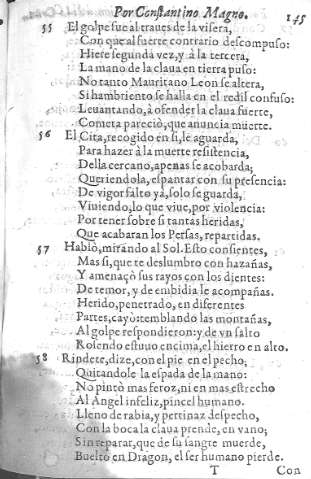 Por Constantino Magno. 145
55 El golpe fue al traues de la visera,
Con que al fuerte contrario descompuso:
Hiere segunda vez, y à la tercera,
La mano de la claua en tierra puso:
No tanto Mauritano Leon se altera,
Si hambriento se halla en el redil confuso:
Leuantando, à ofender la claua fuerte,
Cometa pareciò, que anuncia muerte.
56 El Cita, recogido en si, le aguarda,
Para hazer à la muerte resistencia,
Della cercano, apenas se acobarda;
Queriendola, espantar con su presencia:
De vigor falto ya, solo se guarda,
Viuiendo, lo que viue, por violencia:
Por tener sobre si tantas heridas,
Que acabaran los Persas, repartidas.
57 Hablò, mirando al Sol. Esto consientes,
Mas si, que te deslumbro con hazañas,
Y amenaçò sus rayos con los dientes:
De temor, y de embidia le acompañas.
Herido, penetrado, en diferentes
Partes, cayò: temblando las montañas,
Al golpe respondieron: y de vn salto
Rosendo estuuo encima, el hierro en alto.
58 Rindete, dize, con el pie en el pecho,
Quitandole la espada de la mano:
No pintò mas feroz, ni en mas estrecho
Al Angel infeliz, pincel humano.
Lleno de rabia, y pertinaz despecho,
Con la boca la claua prende, en vano;
Sin reparar, que de su sangre muerde,
Buelto en Dragon, el ser humano pierde.
T Con